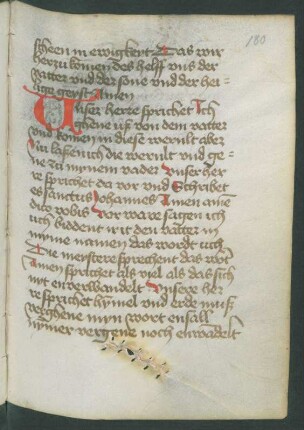 180
scheen in ewigkeyt Das wir
herzu komen des helff uns der
vatter und der sone und der hei-
lige geyst Amen
Unser herre sprichet Ich
ghene uß von dem vatter
und komen in diese werult aber
so laßen ich die werult und ge-
ne zu mynem vader Unser her
re sprichet da vor und Schribet
es sanctus Johannes Amen ame
dico vobis Vor ware sagen ich
uch biddent ir it den vatter in
myme namen das wordt uch
Die meystere sprechent das wort
Amen sprichet als viel als das sich
nit enverwandelt Unsere her
re sprichet hymel und erde muß
verghene myn wort ensall
nymer vergene noch enwandelt